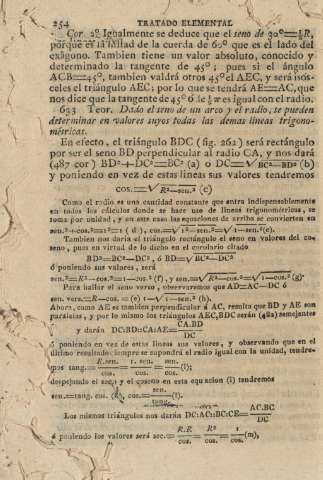 254 TRATADO ELEMENTAL
Cor. 2º Igualmente se deduce que el seno de 30º=½R,
porque es la mitad de la cuerda de 60º que es el lado del
exágono. Tambien tiene un valor absoluto, conocido y
determinado la tangente de 45º; pues si el ángulo
ACB=45º, tambien valdrá otros 45º el AEC, y será isós-
celes el triángulo AEC; por lo que se tendrá AE=AC, que
nos dice que la tangente de 45º ó le ¼ π es igual con el radio.
633 Teor. Dado el seno de un arco y el radio, se pueden
determinar en valores suyos todas las demas líneas trigono-
métricas.
En efecto, el triángulo BDC (fig. 262) será rectángulo
por ser el seno BD perpendicular al radio CA, y nos dará
(487 cor) BD²+DC²=BC² (a) o DC=√BC²—BD² (b)
y poniendo en vez de estas líneas sus valores tendremos
cos.=√R²—sen.² (c)
Como el radio es una cantidad constante que entra indispensablemente
en todos los cálculos donde se hace uso de líneas trigonométricas, se
toma por unidad, y en este caso las equaciones de arriba se convierten en
sen.²+cos.²=1²=1 (d), cos.=√1²—sen.²=√1—sen.²(e).
Tambien nos daria el triángulo rectángulo el seno en valores del co-
seno, pues en virtud de lo dicho en el corolario citado
BD²=BC²—DC², ó BD=√BC²—DC²
ó poniendo sus valores, será
sen.²=R²—cos.²=1—cos.² (f), y sen.=√R²—cos.²=√1—cos.² (g)
Para hallar el seno verso, observaremos que AD=AC—DC ó
sen. vers.=R—cos.=(e) 1—√1—sen.² (h).
Ahora, como AE es tambien perpendicular á AC, resulta que BD y AE son
paralelas, y por lo mismo los triángulos AEC, BDC serán (482) semejantes
y darán DC:BD::CA:AE=CA.BD/DC
ó poniendo en vez de estas líneas sus valores, y observando que en el
último resultado siempre se supondrá el radio igual con la unidad, tendre-
mos tang.=R.sen./cos.=1. sen./cos.=sen./cos. (i);
despejando el seno y el coseno en esta equacion (i) tendremos
sen.=tang. cos. (k), cos.=sen./tang.
Los mismos triángulos nos darán DC:AC::BC:CE=AC.BC/DC
ó poniendo los valores será sec.=R.R/cos.=R²/cos.=1/cos. (m),